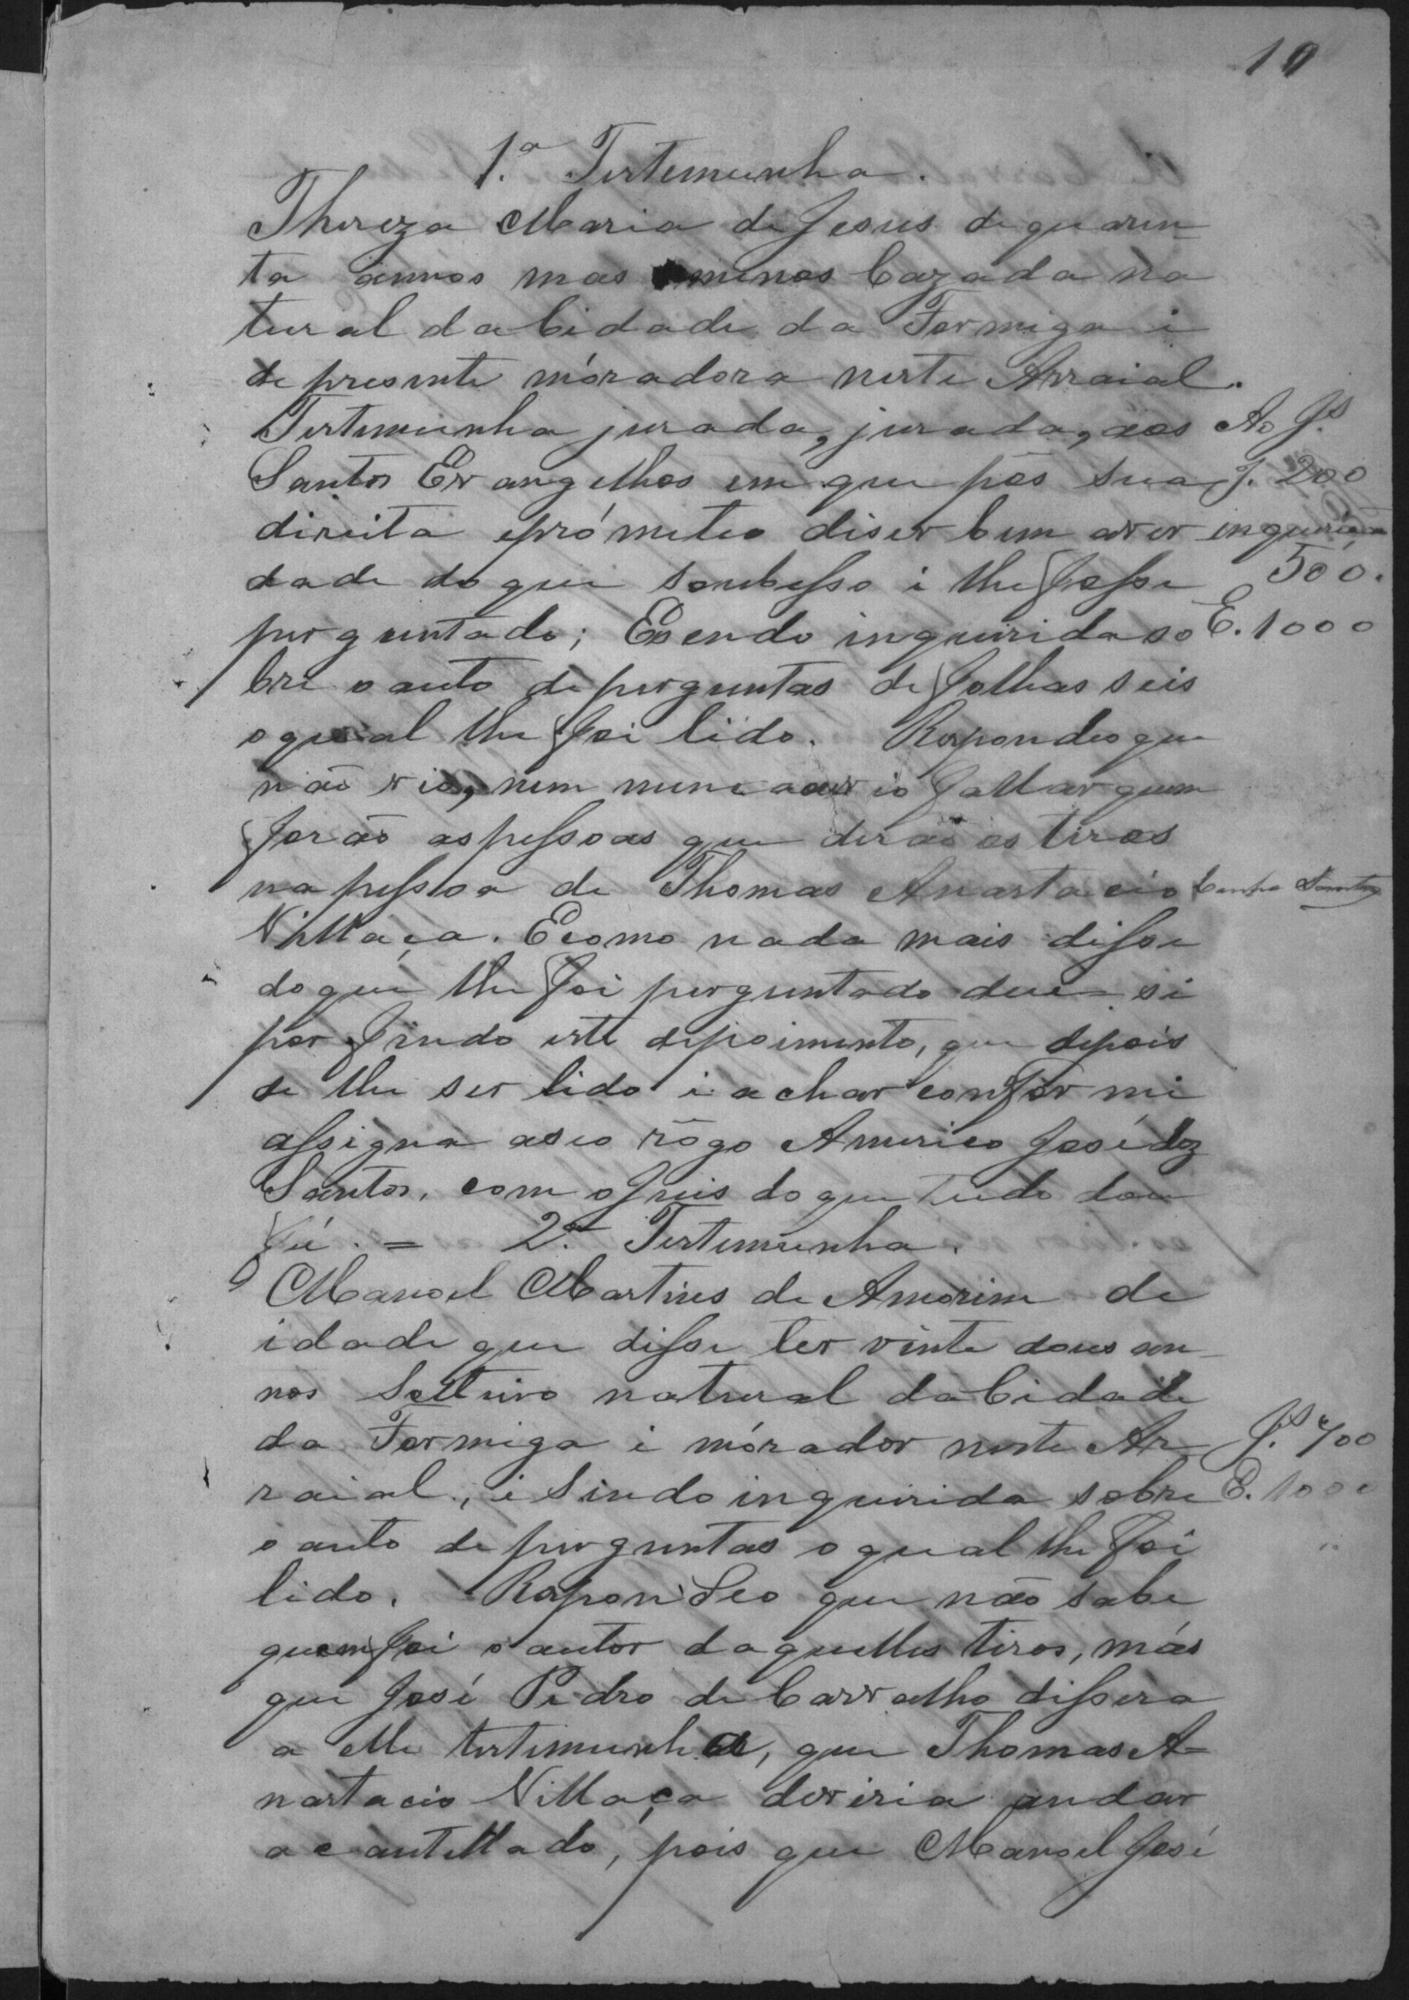 10
1.ª Testemunha.
Thereza Maria de Jesus de quaren-
ta annos mas menos Cazada na
tural da Cidade da Formiga i
de presente móradora neste Arraial.
Testemunha jurada, jurada, aos
Ao Js.
Santos Evangelhos em que pôs sua
J. 200
direita e prómeteo diser bem a ver
inquiri
dade do que soubesso i lhe fosse
500.
perguntado; E sendo inquirida so
E. 1000
bre o auto de perguntas de folhas seis
o qual lhe foi lido. Respondeo que
não vio, nem nunca ouvio fallar quem
forão as pessoas que derão os tiros
na pessoa de Thomas Anastacio
Villaça. E como nada mais disse
do que lhe foi perguntado deu-se
por findo este depoimento, que depois
de lhe ser lido i achar conforme
assigna a seo rôgo Americo José dos
Santos, com o Juis do que tudo dou
fé. = 2.ª Testemunha.
Manoel Martins de Amorim de
idade que disse ter vinte dous an-
nos Solteiro natural da Cidade
da Formiga i mórador neste Ar-
Js. 400
raial, i sindo inquirida sobre
E. 1000
o auto de perguntas o qual lhe foi
lido. Respondeo que não sabe
quem foi o autor daquelles tiros, más
que José Pedro de Carvalho dissera
a elle testemunha, que Thomas A-
nastacio Villaça deviria andar
acautellado, pois que Manoel José